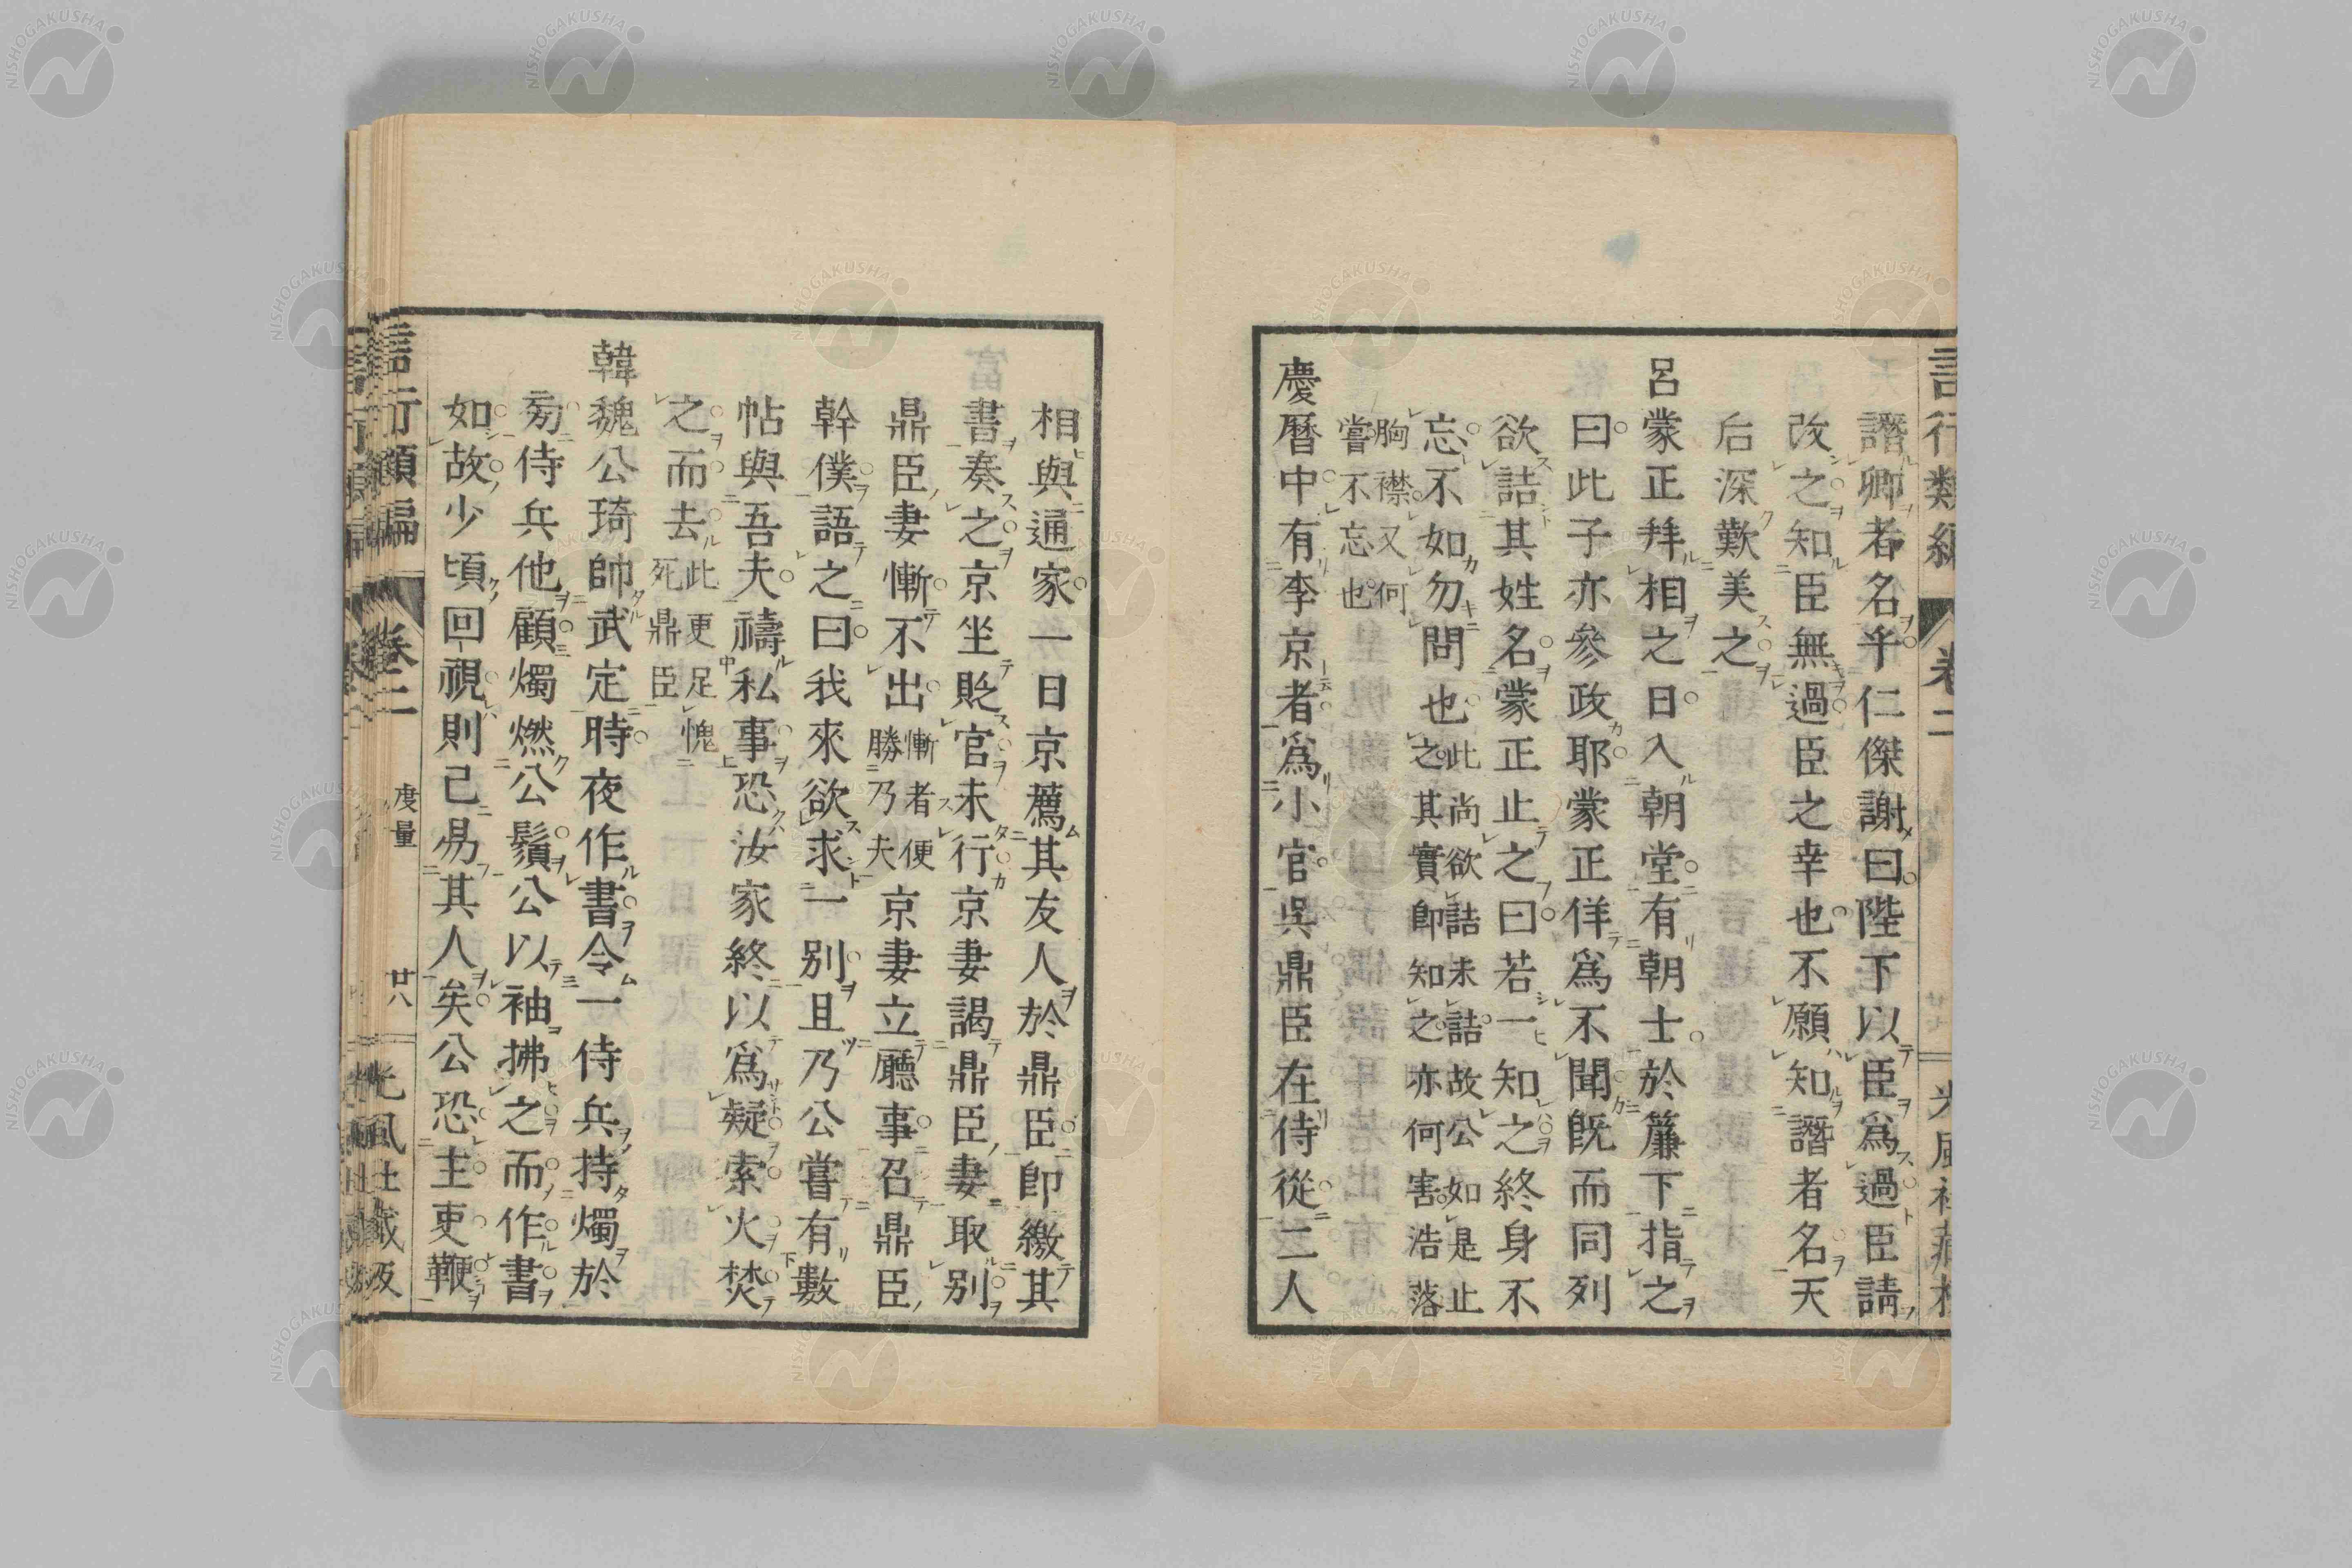 言行類編 卷二 光風社藏板
譖卿者名乎仁傑謝曰陛下以臣爲過臣請
改之知臣無過臣之幸也不願知譖者名天
后深歎美之
呂蒙正拜相之日入朝堂有朝士於簾下指之
曰此子亦參政耶蒙正佯爲不聞旣而同列
欲詰其姓名蒙正止之曰若一知之終身不
忘不如勿問也此尚欲詰未詰故公如是止
之其實卽知之亦何害浩落
胸襟又何
嘗不忘也
慶曆中有李京者爲小官吳鼎臣在侍從二人
相與通家一日京薦其友人於鼎臣卽繳其
書奏之京坐貶官未行京妻謁鼎臣妻取別
鼎臣妻慚不出慚者便
勝乃夫京妻立廳事召鼎臣
幹僕語之曰我來欲求一別且乃公嘗有數
帖與吾夫禱私事恐汝家終以爲疑索火焚
之而去此更足愧
死鼎臣
韓魏公琦帥武定時夜作書令一侍兵持燭於
旁侍兵他顧燭燃公鬚公以袖拂之而作書
如故少頃回視則已易其人矣公恐主吏鞭
言行類編 卷二 度量 廿八 光風社藏板